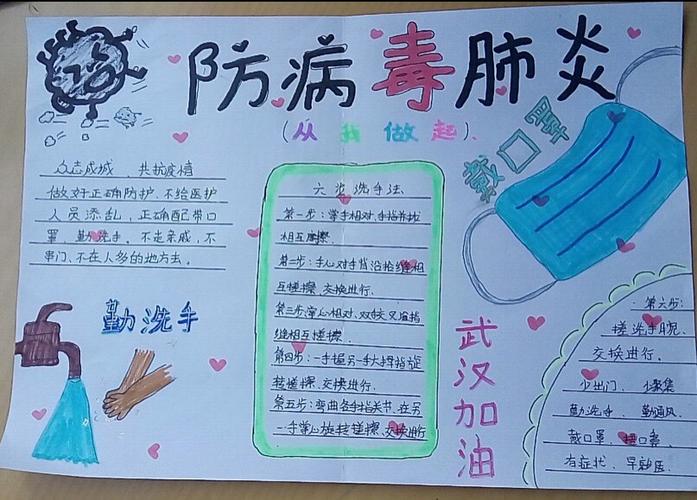 防病毒肺炎
(从我做起).
众志成城，共抗疫情
做好正确防护、不给医护
人员添乱，正确配带口
罩、勤洗手、不走亲戚、不
串门、不在人多的地方去。
勤洗手
六步洗手法、
第一步：掌手相对、手指并拢
相互摩擦、
第二步：手心对手背沿指缝相
互搓擦、交换进行、
第三步：掌心相对、双手交叉沿指
缝相互搓擦、
第四步：一手握另一手大拇指旋
转搓擦、交换进行、
第五步：弯曲各手指关节、在另
一手掌心旋转搓擦、交换进行
戴口罩
武汉加油
第六步：
搓洗手腕、
交换进行。
少出门、少聚集
勤洗手、勤通风、
戴口罩、
有症状、早就医、